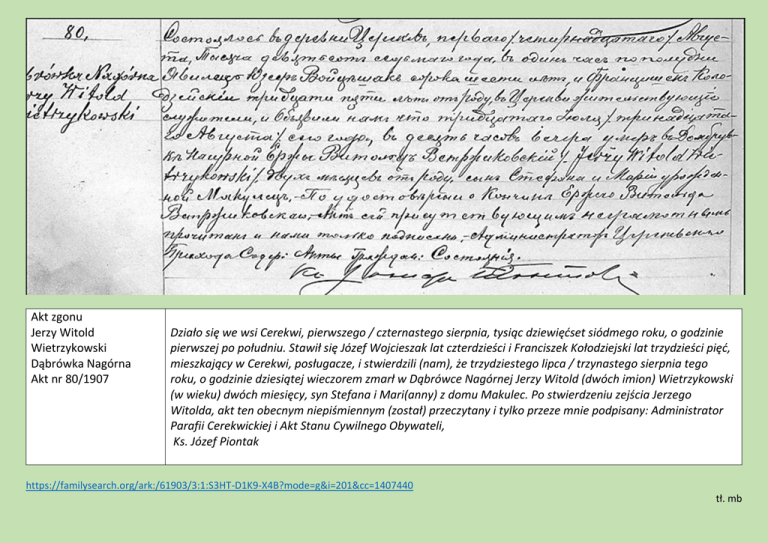 80,
Dąbrówka Nagórna
Jerzy Witold
Wietrzykowski
Состоялось въ деревни Церекви, перваго /четырнадцатаго/ Авгус-
та, Тысяча девятьсотъ седьмаго года, въ одинъ часъ по полудни
Явились Юзефъ Войцѣшакъ сорока шести лѣтъ, и Францишекъ Коло-
дзейскій тридцати пяти лѣтъ отроду, въ Церекви жительствующіе
служители, и объявили намъ что тридцатаго Іюля / тринадцата-
го Августа / сего года, въ десять часовъ вечера умеръ въ Домбрув-
кѣ Нагурной Ержы Витольдъ Ветржиковскій / Jerzy Witold Wie-
trzykowski /. двухъ мѣсяцевъ отъ роду, сынъ Стефана и Маріи урожден-
ной Макулецъ. - По удостовѣреніи о Кончинѣ Ержего Витольда
Ветржиковскаго, Актъ сей присутствующимъ неграмотнымъ
прочитанъ и нами только подписанъ. - Администраторъ Церекевскаго
Прихода Содер: Акты Граждан: Состоянія.
Кс.
Akt zgonu
Jerzy Witold
Wietrzykowski
Dąbrówka Nagórna
Akt nr 80/1907
Działo się we wsi Cerekwi, pierwszego / czternastego sierpnia, tysiąc dziewięćset siódmego roku, o godzinie
pierwszej po południu. Stawił się Józef Wojcieszak lat czterdzieści i Franciszek Kołodziejski lat trzydzieści pięć,
mieszkający w Cerekwi, posługacze, i stwierdzili (nam), że trzydziestego lipca / trzynastego sierpnia tego
roku, o godzinie dziesiątej wieczorem zmarł w Dąbrówce Nagórnej Jerzy Witold (dwóch imion) Wietrzykowski
(w wieku) dwóch miesięcy, syn Stefana i Mari(anny) z domu Makulec. Po stwierdzeniu zejścia Jerzego
Witolda, akt ten obecnym niepiśmiennym (został) przeczytany i tylko przeze mnie podpisany: Administrator
Parafii Cerekwickiej i Akt Stanu Cywilnego Obywateli,
Ks. Józef Piontak
https://familysearch.org/ark:/61903/3:1:S3HT-D1K9-X4B?mode=g&i=201&cc=1407440
tł. mb